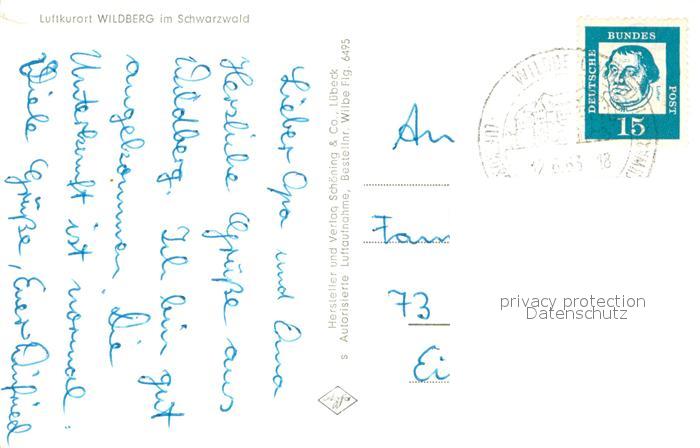 Luftkurort WILDBERG im Schwarzwald
Lieber Opa und Oma
Herzliche Grüße aus
Wildberg. Ich bin gut
angekommen. Die
Unterkunft ist normal.
Viele Grüße, Euer Winfried
Hersteller und Verlag Schöning & Co., Lübeck
s Autorisierte Luftaufnahme, Bestellnr. Wilbe Flg. 6495
An
Fam
73
Ei
DEUTSCHE BUNDES POST
15
18
privacy protection
Datenschutz